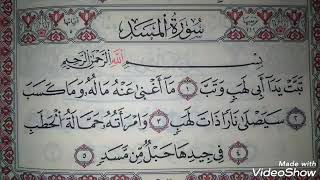 سُورَةُ المَسَدِ
بِسْمِ اللَّهِ الرَّحْمَٰنِ الرَّحِيمِ
تَبَّتْ يَدَا أَبِي لَهَبٍ وَتَبَّ ١ مَا أَغْنَىٰ عَنْهُ مَالُهُ وَمَا كَسَبَ
٢ سَيَصْلَىٰ نَارًا ذَاتَ لَهَبٍ ٣ وَامْرَأَتُهُ حَمَّالَةَ الْحَطَبِ
٤ فِي جِيدِهَا حَبْلٌ مِّن مَّسَدٍ ٥
Made with
VideoShow